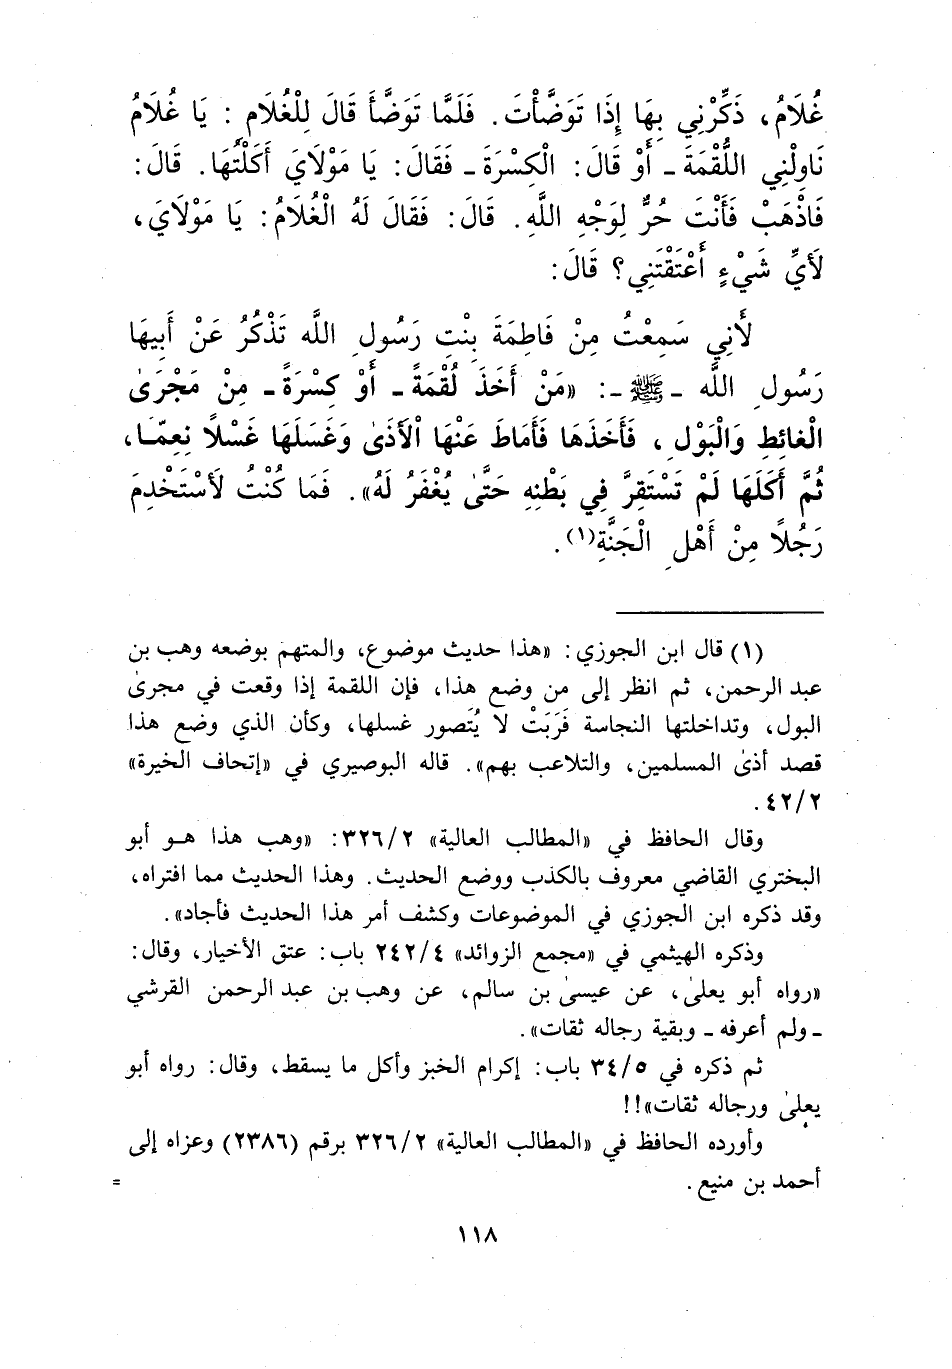 غُلَامُ، ذَكِّرْنِي بِهَا إِذَا تَوَضَّأْتَ. فَلَمَّا تَوَضَّأَ قَالَ لِلْغُلَامِ : يَا غُلَامُ
نَاوِلْنِي اللُّقْمَةَ ـ أَوْ قَالَ: الْكِسْرَةَ ـ فَقَالَ: يَا مَوْلَايَ أَكَلْتُهَا. قَالَ:
فَاذْهَبْ فَأَنْتَ حُرٌّ لِوَجْهِ اللَّهِ. قَالَ: فَقَالَ لَهُ الْغُلَامُ: يَا مَوْلَايَ،
لَأَيِّ شَيْءٍ أَعْتَقْتَنِي؟ قَالَ:
لَأَنِي سَمِعْتُ مِنْ فَاطِمَةَ بِنْتِ رَسُولِ اللَّه تَذْكُرُ عَنْ أَبِيهَا
رَسُولِ اللَّه ـ ﷺ ـ: «مَنْ أَخَذَ لُقْمَةً ـ أَوْ كِسْرَةً ـ مِنْ مَجْرَىٰ
الْغَائطِ وَالْبَوْلِ، فَأَخَذَهَا فَأَمَاطَ عَنْهَا الْأَذَىٰ وَغَسَلَهَا غَسْلاً نِعِمَّا،
ثُمَّ أَكَلَهَا لَمْ تَسْتَقِرَّ فِي بَطْنِهِ حَتَّىٰ يُغْفَرُ لَهُ». فَمَا كُنْتُ لَأَسْتَخْدِمَ
رَجُلاً مِنْ أَهْلِ الْجَنَّةِ(١).
(١) قال ابن الجوزي: «هذا حديث موضوع، والمتهم بوضعه وهب بن
عبد الرحمن، ثم انظر إلى من وضع هذا، فإن اللقمة إذا وقعت في مجرىٰ
البول، وتداخلتها النجاسة فَرَبَتْ لا يُتَصور غسلها، وكأن الذي وضع هذا
قصد أذىٰ المسلمين، والتلاعب بهم». قاله البوصيري في «إتحاف الخيرة»
٤٢/٢.
وقال الحافظ في «المطالب العالية» ٣٢٦/٢: «وهب هذا هو أبو
البختري القاضي معروف بالكذب ووضع الحديث. وهذا الحديث مما افتراه،
وقد ذكره ابن الجوزي في الموضوعات وكشف أمر هذا الحديث فأجاد».
وذكره الهيثمي في «مجمع الزوائد» ٢٤٢/٤ باب: عتق الأخيار، وقال:
«رواه أبو يعلىٰ، عن عيسىٰ بن سالم، عن وهب بن عبد الرحمن القرشي
ـ ولم أعرفه ـ وبقية رجاله ثقات».
ثم ذكره في ٣٤/٥ باب: إكرام الخبز وأكل ما يسقط، وقال: رواه أبو
يعلىٰ ورجاله ثقات»!!
وأورده الحافظ في «المطالب العالية» ٣٢٦/٢ برقم (٢٣٨٦) وعزاه إلى
أحمد بن منيع. =
١١٨